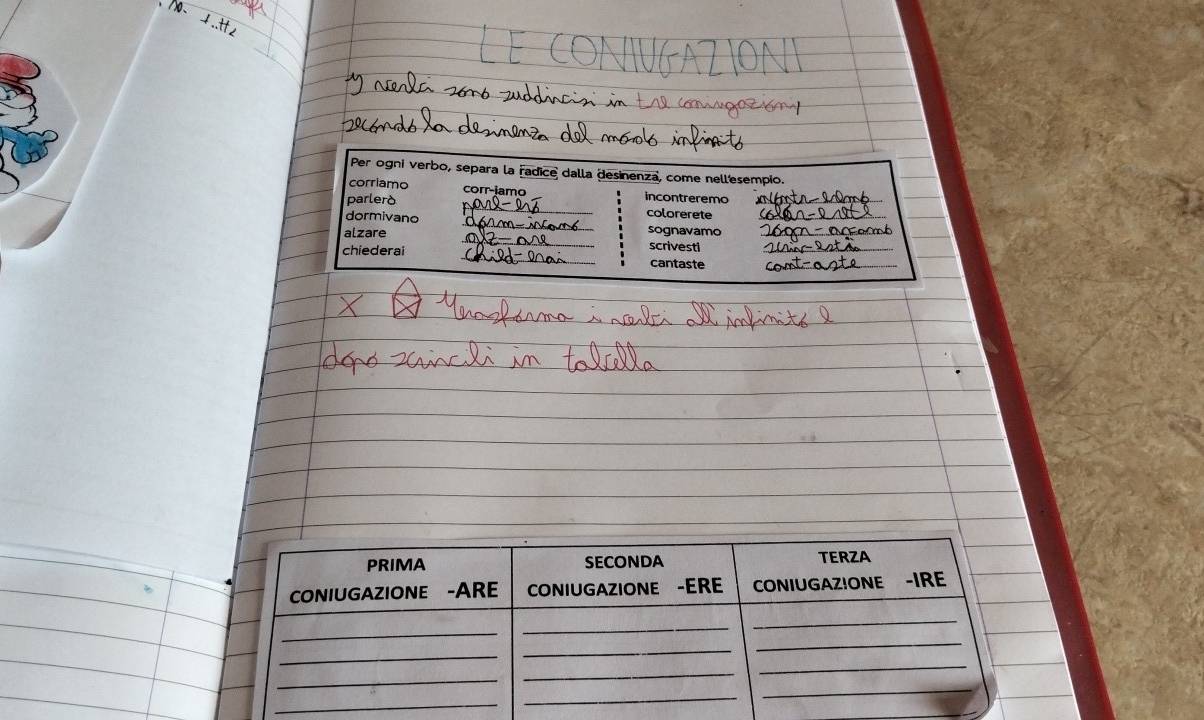 LE CONIUGAZIONI
I verbi sono suddivisi in tre coniugazioni
secondo la desinenza del modo infinito
Per ogni verbo, separa la radice dalla desinenza, come nell'esempio.
corriamo corr-iamo
parlerò parl-erò
dormivano dorm-ivano
alzare alz-are
chiederai chied-erai
incontreremo incontr-eremo
colorerete color-erete
sognavamo sogn-avamo
scrivesti scriv-esti
cantaste cant-aste
X Trasforma i verbi all'infinito e
dopo scrivili in tabella
PRIMA
CONIUGAZIONE -ARE
SECONDA
CONIUGAZIONE -ERE
TERZA
CONIUGAZIONE -IRE